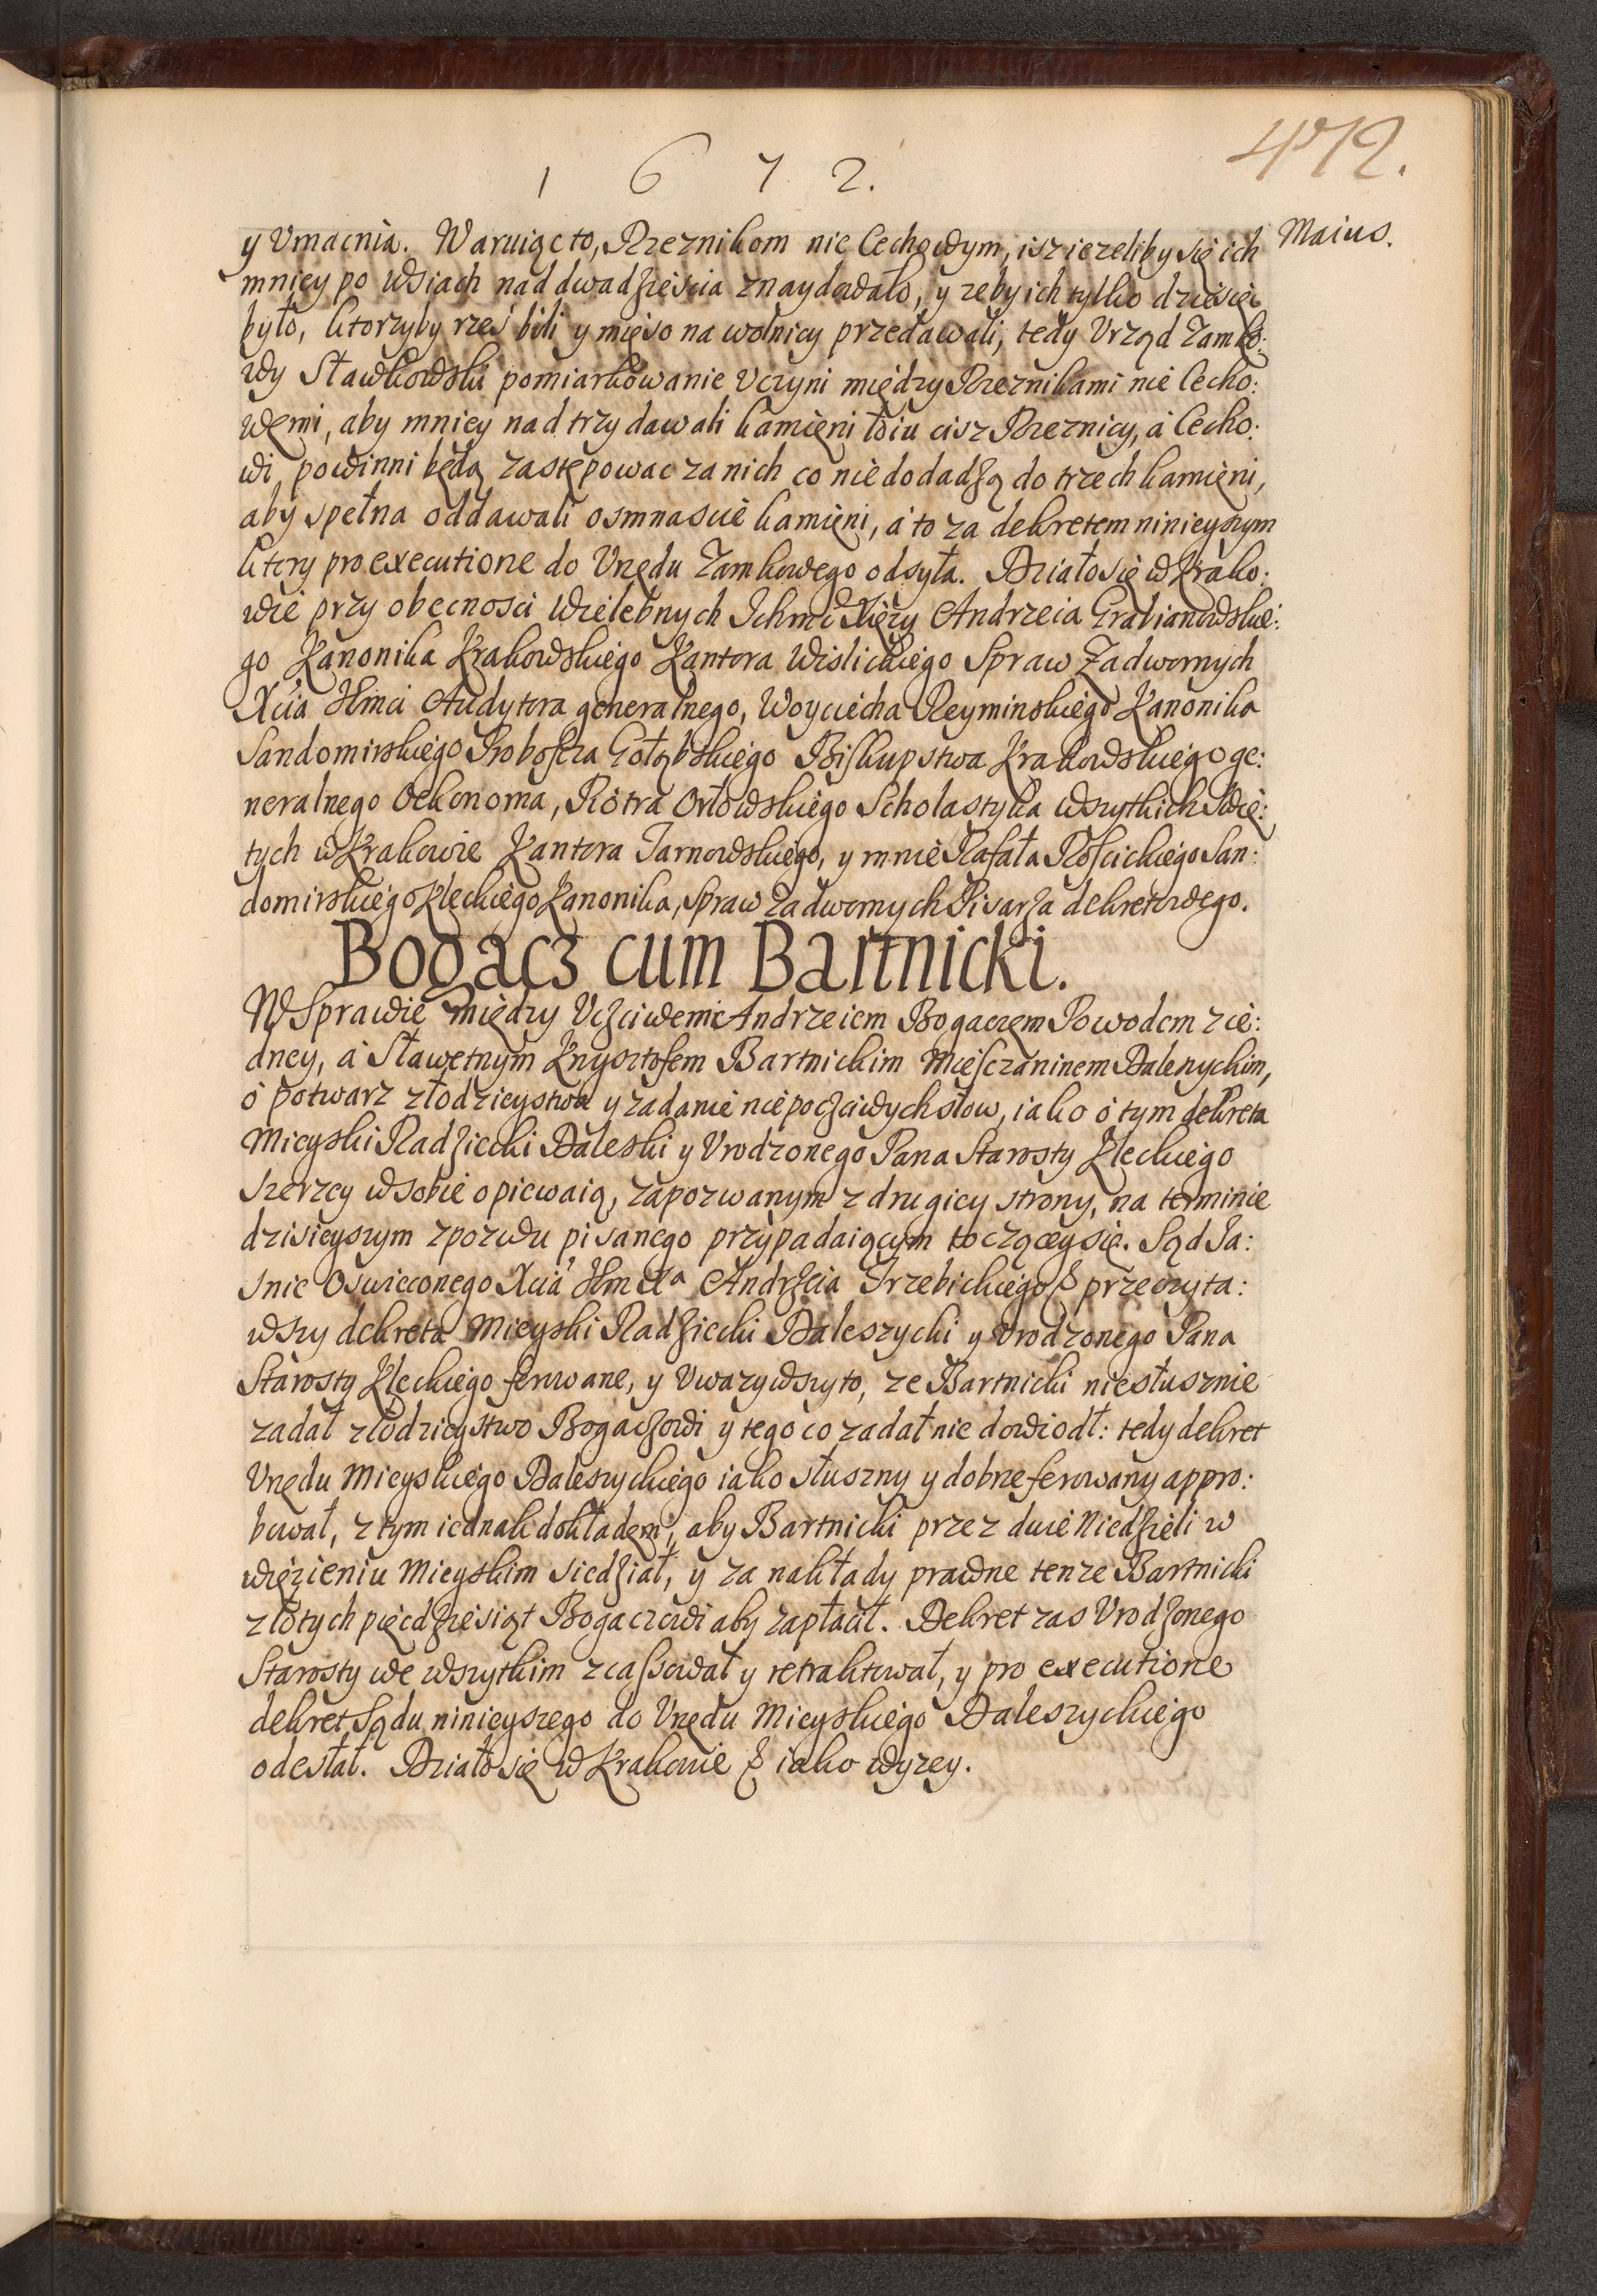 472.
1 6 7 2.
Maius.
y Vmacnia. Waruiąc to, Rzeznikom nie Cechowym, isz iezeliby się ich
mniey po wsiach nad dwadzieścia znaydowało, y zeby ich tylko dzieśięć
było, ktorzyby rzeź bili y mięso na wolnicy przedawali, tedy Vrząd Zamko:
wy Sławkowski pomiarkowanie Vczyni między Rzeznikami nie Cecho:
wemi, aby mniey nad trzy dawali kamięni łoiu cisz Rzeznicy, á Cecho:
wi powinni będą zastępowac za nich co nie dodadzą do trzech kamięni,
aby spełna oddawali osmnascie kamięni, á to za dekretem ninieyszym
ktory pro executione do Vrzędu Zamkowego odsyła. Działo się w Krako:
wie przy obecnosci Wielebnych Ichmci Xięzy Andrzeia Grabianowskie:
go Kanonika Krakowskiego Kantora Wislickiego Spraw Zadwornych
Xcia Jłmci Audytora generalnego, Woyciecha Reyminskiego Kanonika
Sandomirskiego Proboscza Gołębskiego Biskupstwa Krakowskiego ge:
neralnego Oekonoma, Piotra Orłowskiego Scholastyka wszytkich Swię:
tych w Krakowie Kantora Tarnowskiego, y mnie Rafała Roscickiego San:
domirskiego Kieckiego Kanonika, Spraw Zadwornych Pisarza dekretowego.
Bogacz cum Bartnicki.
W Sprawie między Vczciwemi Andrzeiem Bogaczem Powodem z ie:
dney, á Sławetnym Krzysztofem Bartnickim Miesczaninem Daleszyckim,
ó potwarz złodzieystwa y zadanie niepoczciwych słow, iako ó tym dekreta
Mieyski Radziecki Daleski y Vrodzonego Pana Starosty Kieckiego
szerzey w sobie opiewaią, zapozwanym z drugiey strony, na terminie
dzisieyszym z pozwu pisanego przypadaiącym toczącey się. Sąd Ja:
snie Oswieconego Xcia Jłmci Xa Andrzeia Trzebickiego & przeczyta:
wszy dekreta Mieyski Radziecki Daleszycki y Vrodzonego Pana
Starosty Kieckiego ferowane, y Vwazywszy to, ze Bartnicki niesłusznie
zadał złodzieystwo Bogaczowi y tego co zadał nie dowiodł: tedy dekret
Vrzędu Mieyskiego Daleszyckiego iako słuszny y dobrze ferowany appro:
bował, z tym iednak dokładem, aby Bartnicki przez dwie Niedzieli w
więzieniu Mieyskim siedział, y za nakłady prawne tenze Bartnicki
złotych pięcdziesiąt Bogaczowi aby zapłacił. Dekret zas Vrodzonego
Starosty we wszytkim zcassował y retraktował, y pro executione
dekret Sądu ninieyszego do Vrzędu Mieyskiego Daleszyckiego
odesłał. Działo się w Krakowie & iako wyzey.